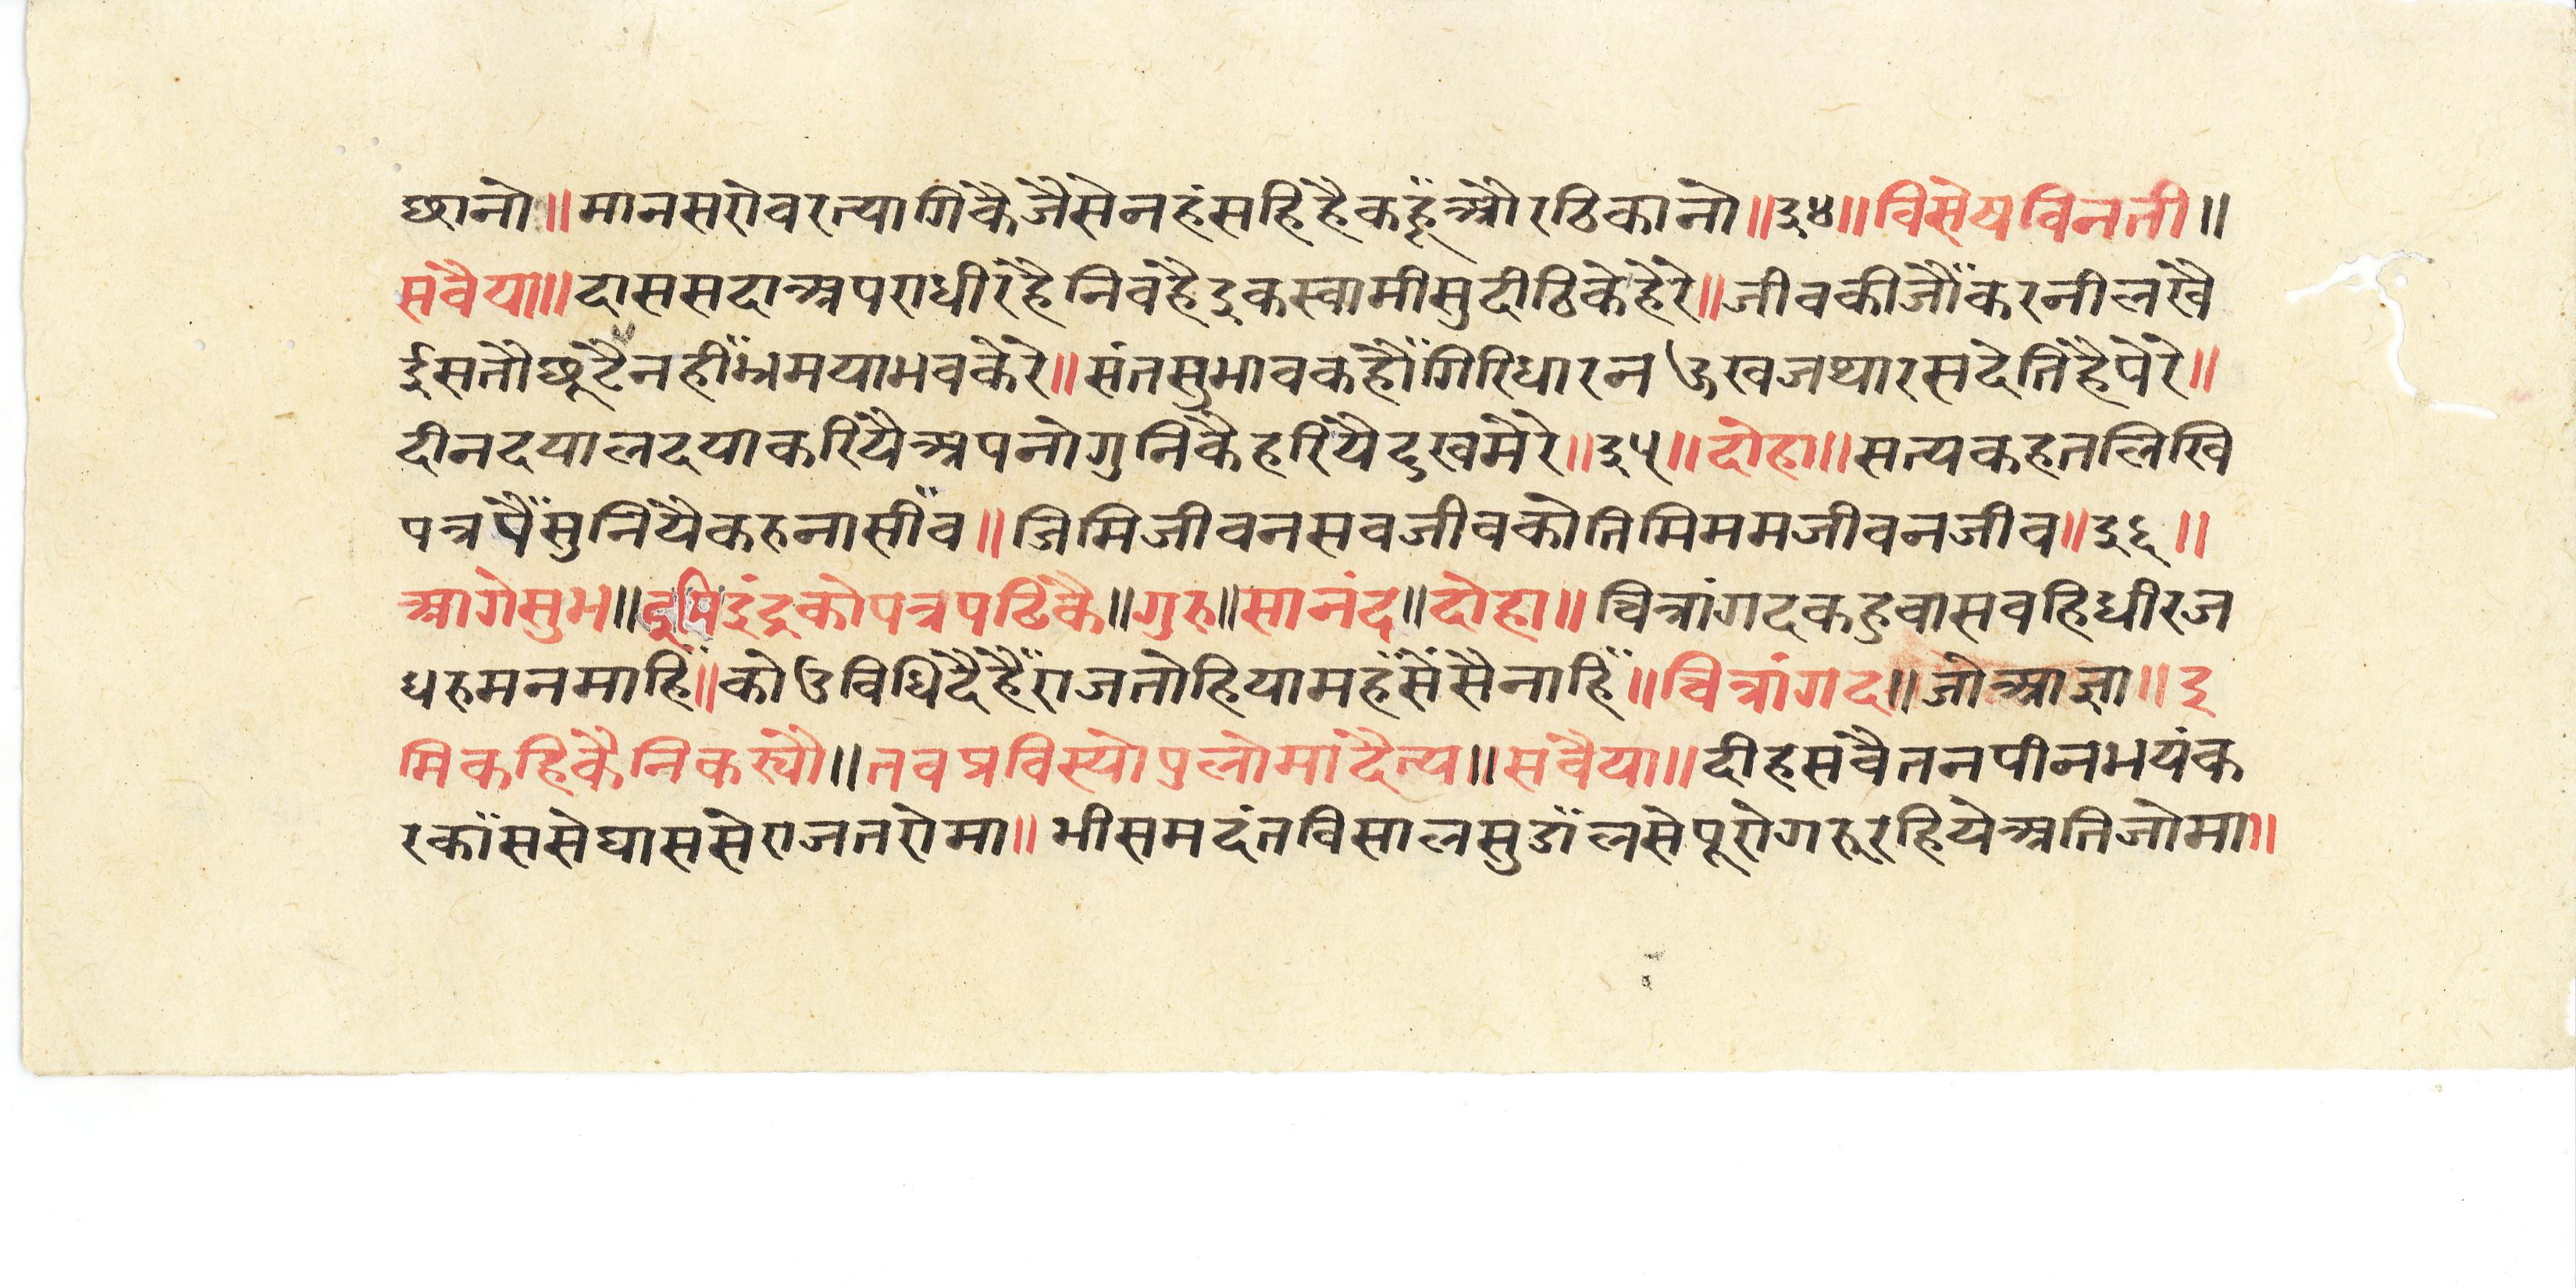 छानो॥मानसरोवरत्यागिकैजैसेनहंसहिहैकहूँऔरठिकानो॥३४॥विसेषविनती॥
सवैया॥दाससदाअपराधीरहैनिवहैइकस्वामीसुदीठिकेहेरे॥जीवकीजौंकरनीलखै
ईसतौछूटैनहींभ्रमयाभवकेरे॥संतसुभावकहौंगिरिधारनऊखजथारसदेतिहैपेरे॥
दीनदयालदयाकरियैअपनोगुनिकैहरियैदुखमेरे॥३५॥दोहा॥सत्यकहतलिखि
पत्रपैंसुनियैकरुनासींव॥जिमिजीवनसवजीवकोतिमिममजीवनजीव॥३६॥
आगेसुभ॥इमिइंद्रकोपत्रपठिकै॥गुरु॥सानंद॥दोहा॥चित्रांगदकहुवासवहिधीरज
धरुमनमाहिँ॥कोऊविधिदैहैंराजतोहियामहँसंसैनाहिँ॥चित्रांगद॥जोआज्ञा॥इ
मिकहिकैनिकस्यौ॥तवप्रविस्योपुलोमांदैत्य॥सवैया॥दीहसवैतनपीनभयंक
रकाँससेघाससेराजतरोमा॥भीसमदंतविसालसुडाँलसेपूरोगरूरहियेअतिजोमा॥